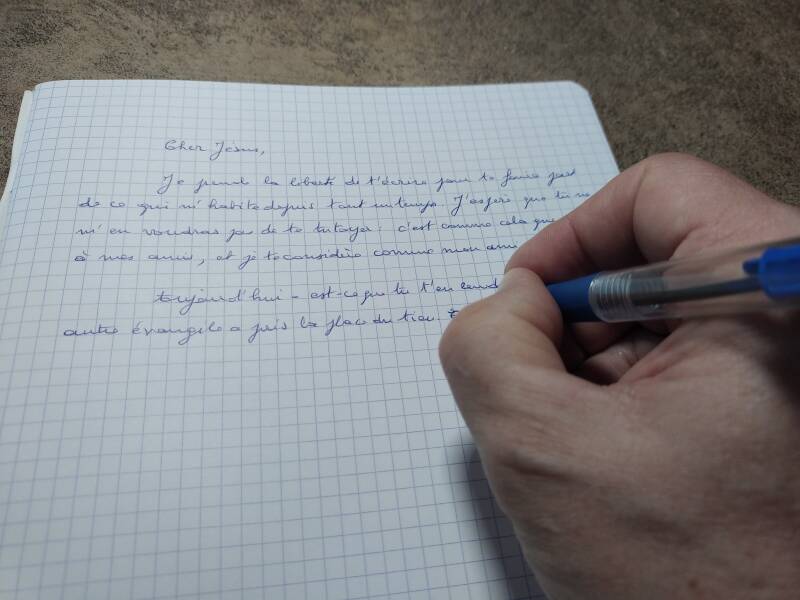 Cher Jésus,
Je prend la liberté de t'écrire pour te faire part
de ce qui m'habite depuis tout un temps. J'espère que tu ne
m'en voudras pas de te tutoyer : c'est comme cela que
à mes amis, et je te considère comme mon ami
Aujourd'hui - est-ce que tu t'en rend
autre évangile a pris la place du tien.